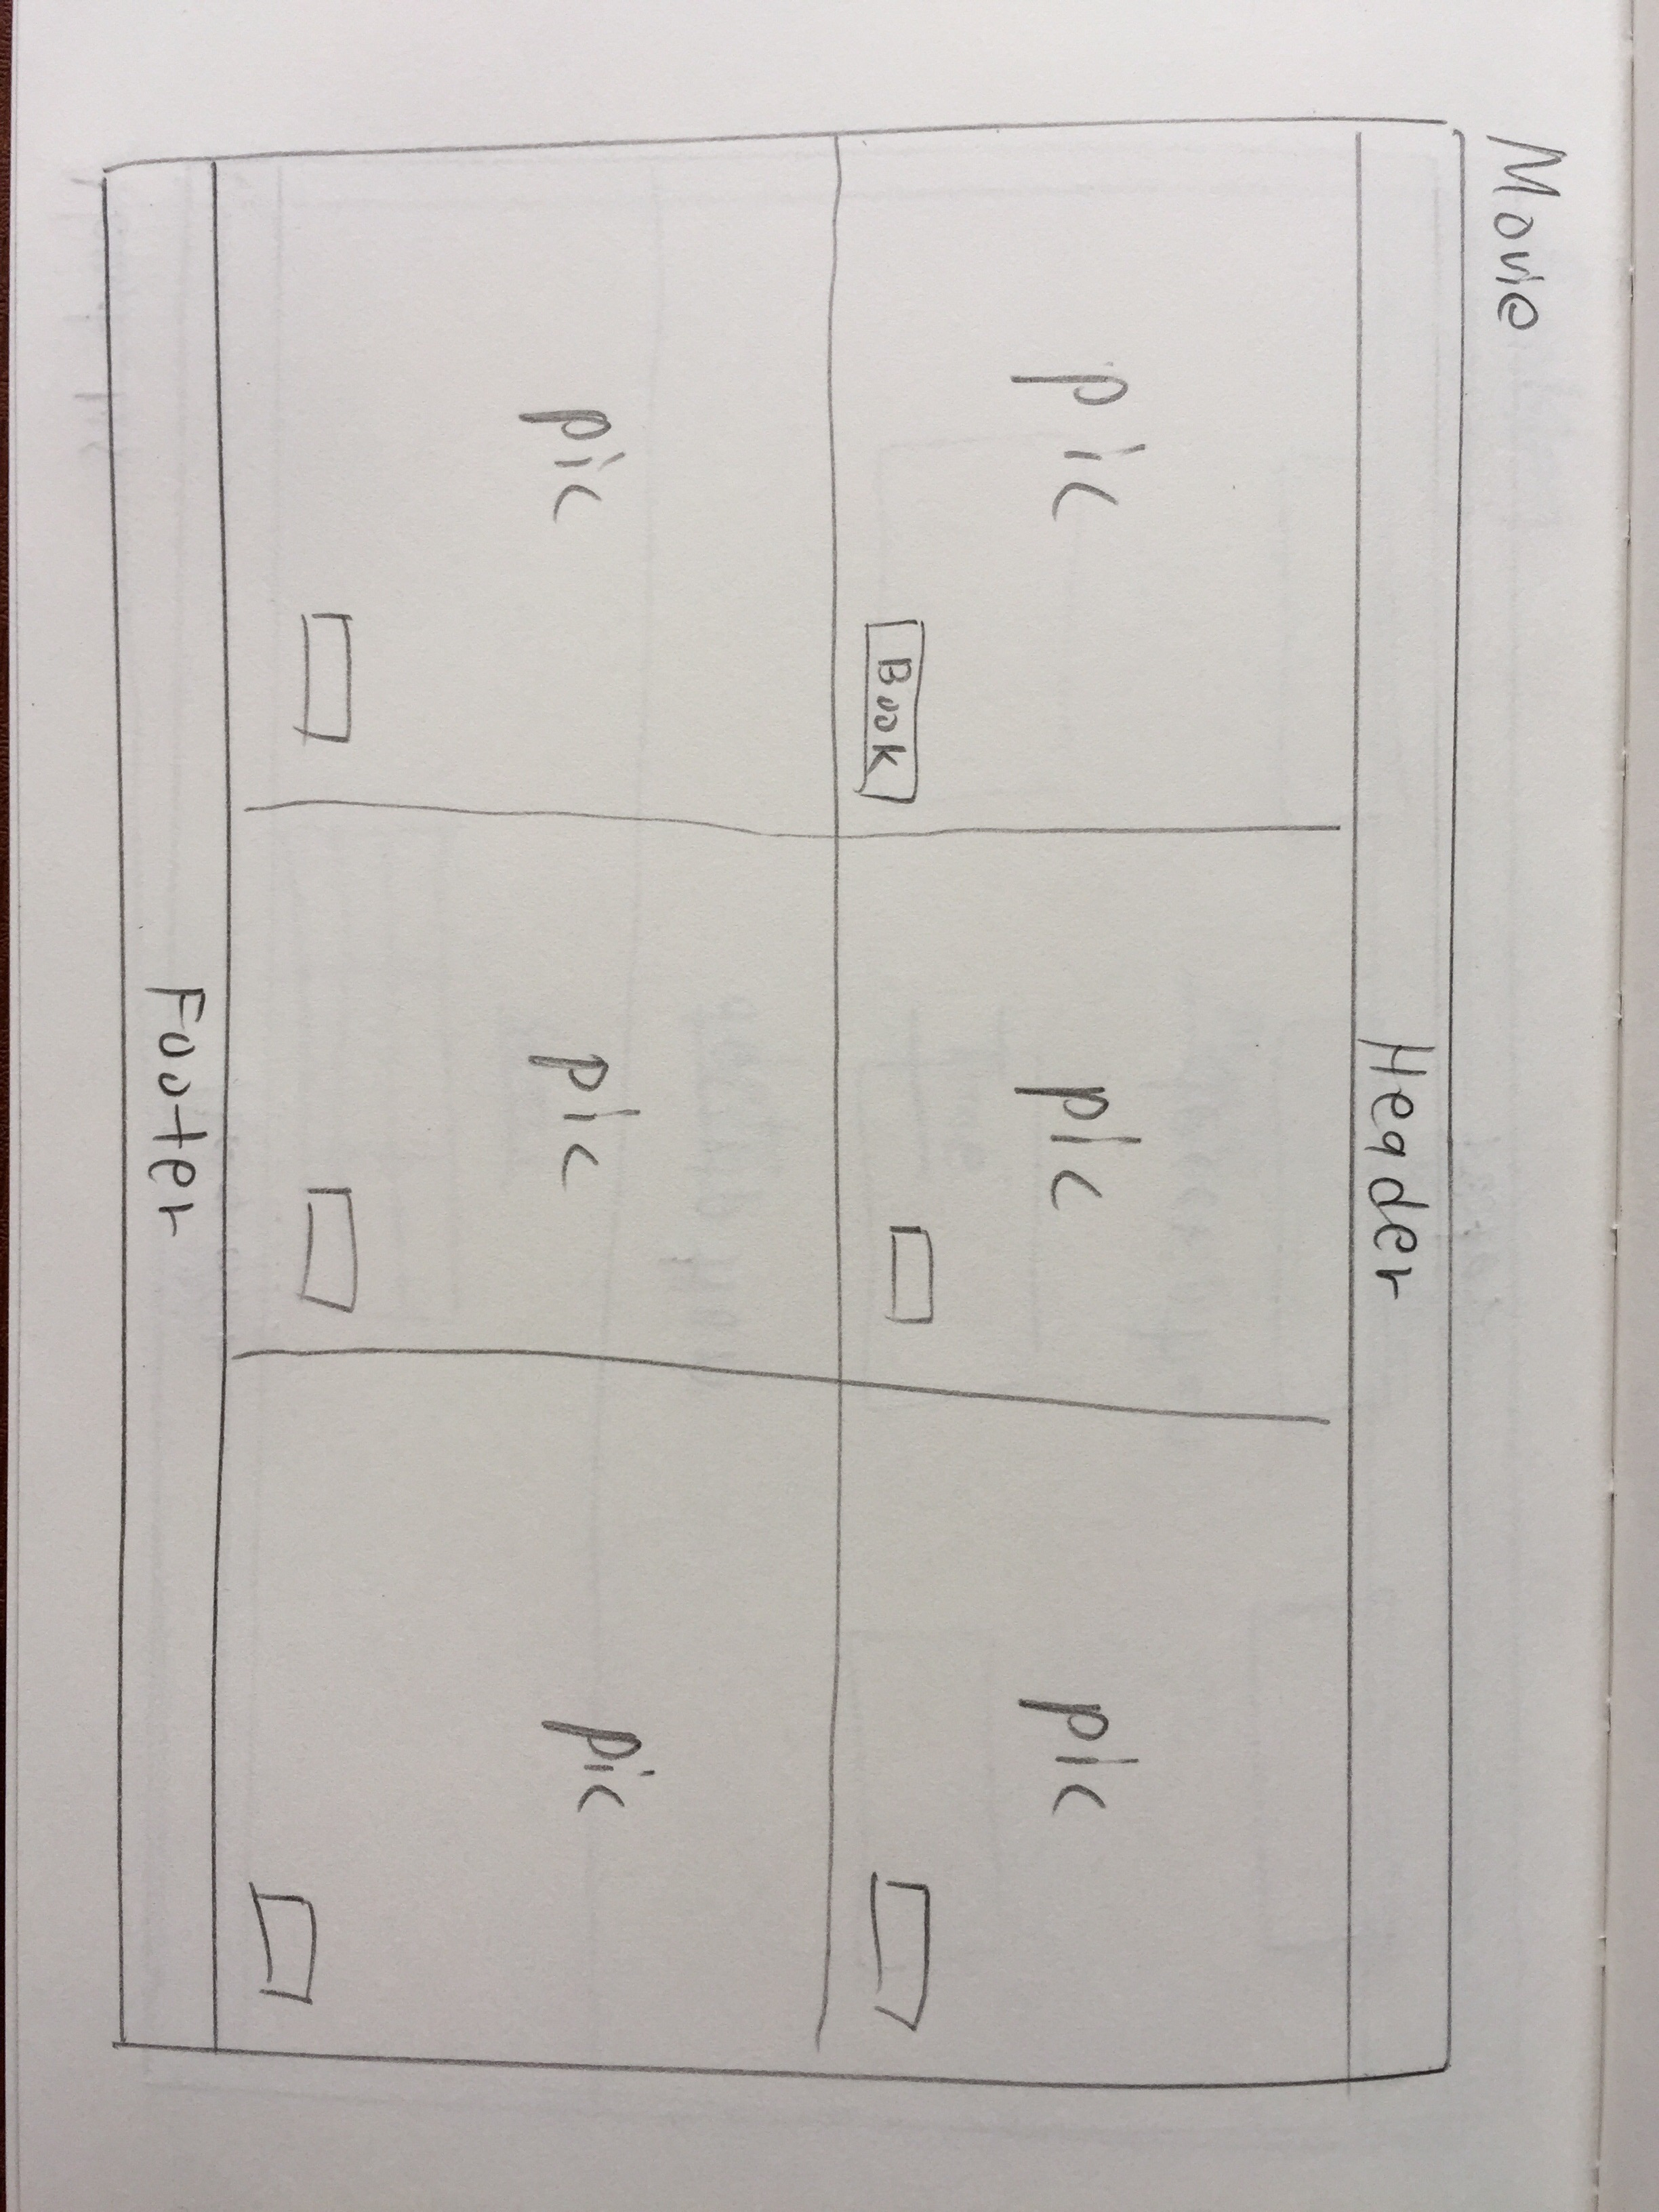 Movie
Header
pic pic pic
Book
pic pic pic
Footer